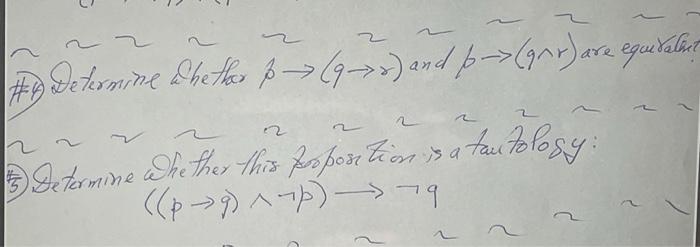 #4) Determine Whether p → (q → r) and p → (q ∧ r) are equivalent
#5) Determine Whether this proposition is a tautology:
((p → q) ∧ ¬p) → ¬q